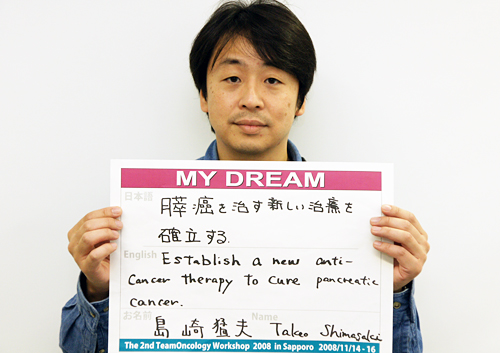 MY DREAM
日本語
膵癌を治す新しい治療を
確立する.
English
Establish a new anti-
cancer therapy to cure pancreatic
cancer.
お名前 Name
島崎猛夫 Takeo Shimasaki
The 2nd TeamOncology Workshop 2008 in Sapporo 2008/11/14 - 16